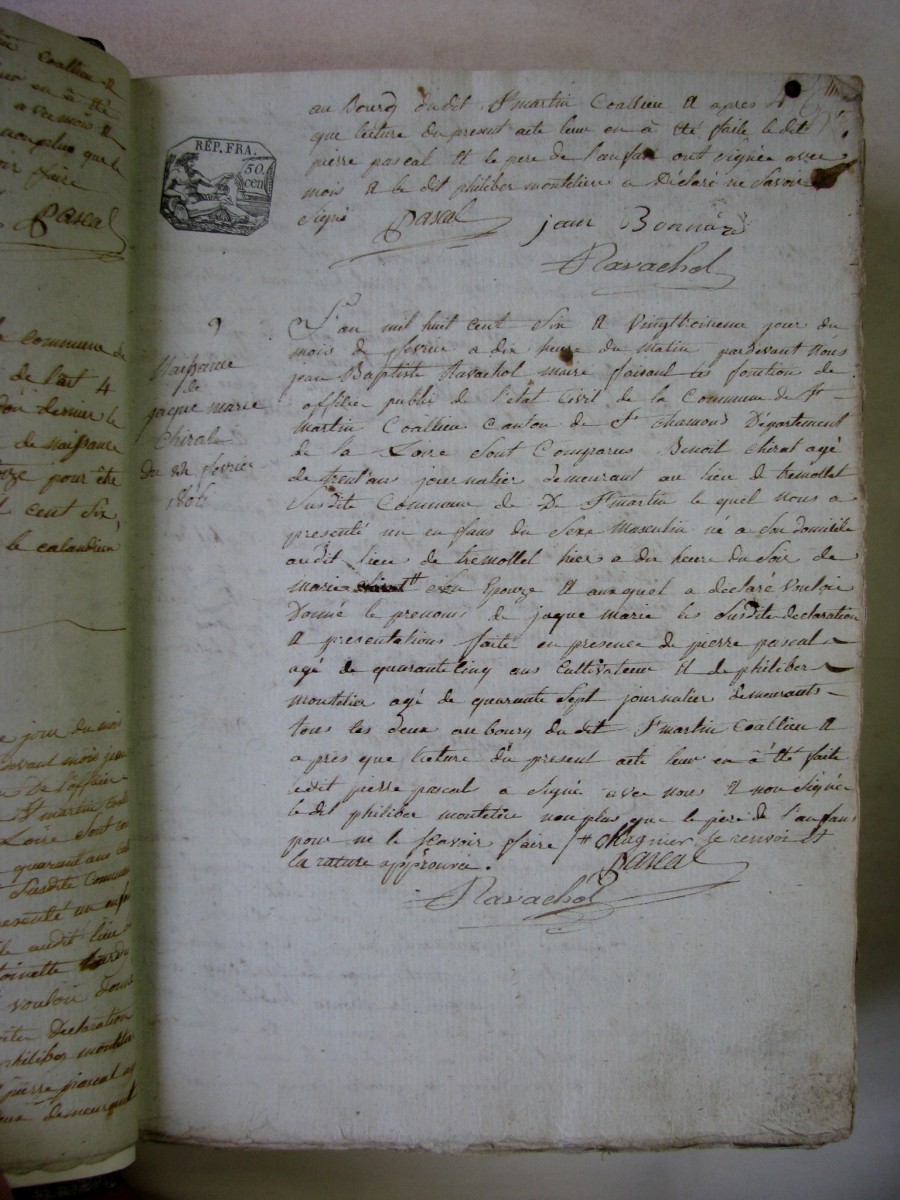 au Bourg du dit St martin Coallieu et apres
que lecture du present acte leur en à été faite le dit
pierre pascal et le pere de l'anfan ont signée avec
mois et le dit philiber montelier a Déclaré ne savoir
signé
Pascal
jean Bonnard
Ravachol
RÉP. FRA.
50
cen
9
Naissance
de
jaque marie
Chirat
du février
1806
L'an mil huit cent Six et Vingtroisieme jour du
mois de fevrier a dix heure du matin pardevant Nous
jean Baptiste Ravachol maire faisant les fonction de
officier public de l'etat Civil de la Commune de St
martin Coallieu Canton de St chamond Département
de la Loire Sont Comparus Benoit Chirat agé
de trent'ans journalier demeurant au lieu de tremollet
Susdite Commune de De St martin le quel nous a
presenté un enfans du Sexe masculin né a Son domicile
audit lieu de tremollet hier a dix heure du Soir de
marie # Son Epouze et auxquel a déclaré vouloir
Donné le prenoms de jaque marie les Susdite declaration
et presentations faite en presence de pierre pascal
agé de quarante Cinq ans Cultivateur et de philiber
montelier agé de quarante Sept journalier demeurants
tous les deux au bourg du dit St martin Coallieu et
apres que lecture du present acte leur en à été faite
ledit pierre pascal a Signé avec nous et non Signée
le dit philiber montelier non plus que le père de l'anfans
pour ne le Scavoir faire /# Magnier le renvoi et
la rature approuvée.
Pascal
Ravachol
Coallieu et
nonplus que le
faire
Pascal
commune de
de l'art 4
dernier le
de Naissance
pour être
cent six,
le calandrier
jour du mois
quarant ans
Susdite Commune
audit lieu
vouloir donné
Declaration
philiber
pierre pascal
demeurant